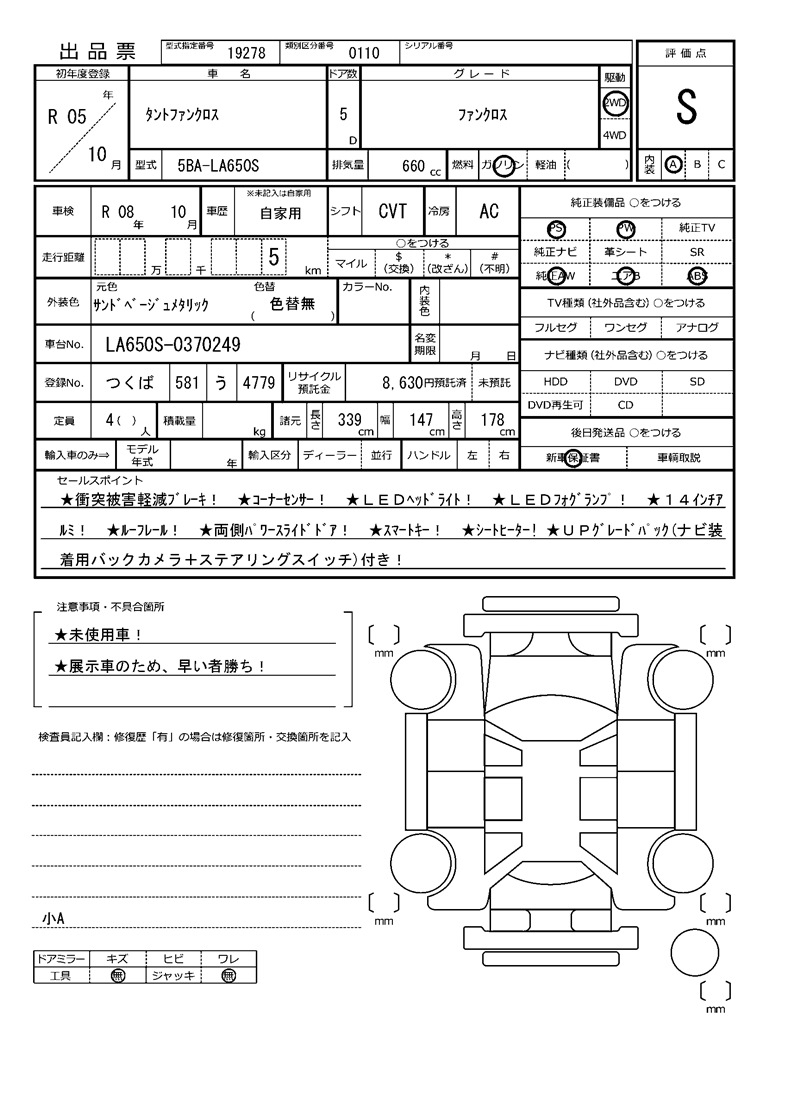 出品票
型式指定番号 19278 類別区分番号 0110 シリアル番号
評価点
S
内装 A B C
初年度登録 車名 ドア数 グレード 駆動
R 05 年 10 月
タントファンクロス 5 D ファンクロス 2WD
4WD
型式 5BA-LA650S 排気量 660 cc 燃料 ガソリン 軽油 ( )
車検 R 08 年 10 月 車歴 ※未記入は自家用 自家用 シフト CVT 冷房 AC
走行距離 万 千 5 km ○をつける
マイル $(交換) *(改ざん) #(不明)
外装色 元色 サンドベージュメタリック 色替 ( 色替無 ) カラーNo. 内装色
車台No. LA650S-0370249 名変期限 月 日
登録No. つくば 581 う 4779 リサイクル預託金 8,630円預託済 未預託
定員 4( )人 積載量 kg 諸元 長さ 339cm 幅 147cm 高さ 178cm
輸入車のみ⇒ モデル年式 年 輸入区分 ディーラー 並行 ハンドル 左 右
純正装備品 ○をつける
PS PW 純正TV
純正ナビ 革シート SR
純正AW エアB ABS
TV種類(社外品含む)○をつける
フルセグ ワンセグ アナログ
ナビ種類(社外品含む)○をつける
HDD DVD SD
DVD再生可 CD
後日発送品 ○をつける
新車保証書 車輌取説
セールスポイント
★衝突被害軽減ブレーキ! ★コーナーセンサー! ★LEDヘッドライト! ★LEDフォグランプ! ★14インチア
ルミ! ★ルーフレール! ★両側パワースライドドア! ★スマートキー! ★シートヒーター! ★UPグレードパック(ナビ装
着用バックカメラ+ステアリングスイッチ)付き!
注意事項・不具合箇所
★未使用車!
★展示車のため、早い者勝ち!
検査員記入欄:修復歴「有」の場合は修復箇所・交換箇所を記入
小A
ドアミラー キズ ヒビ ワレ
工具 無 ジャッキ 無
[ ] mm
[ ] mm
[ ] mm
[ ] mm
[ ] mm